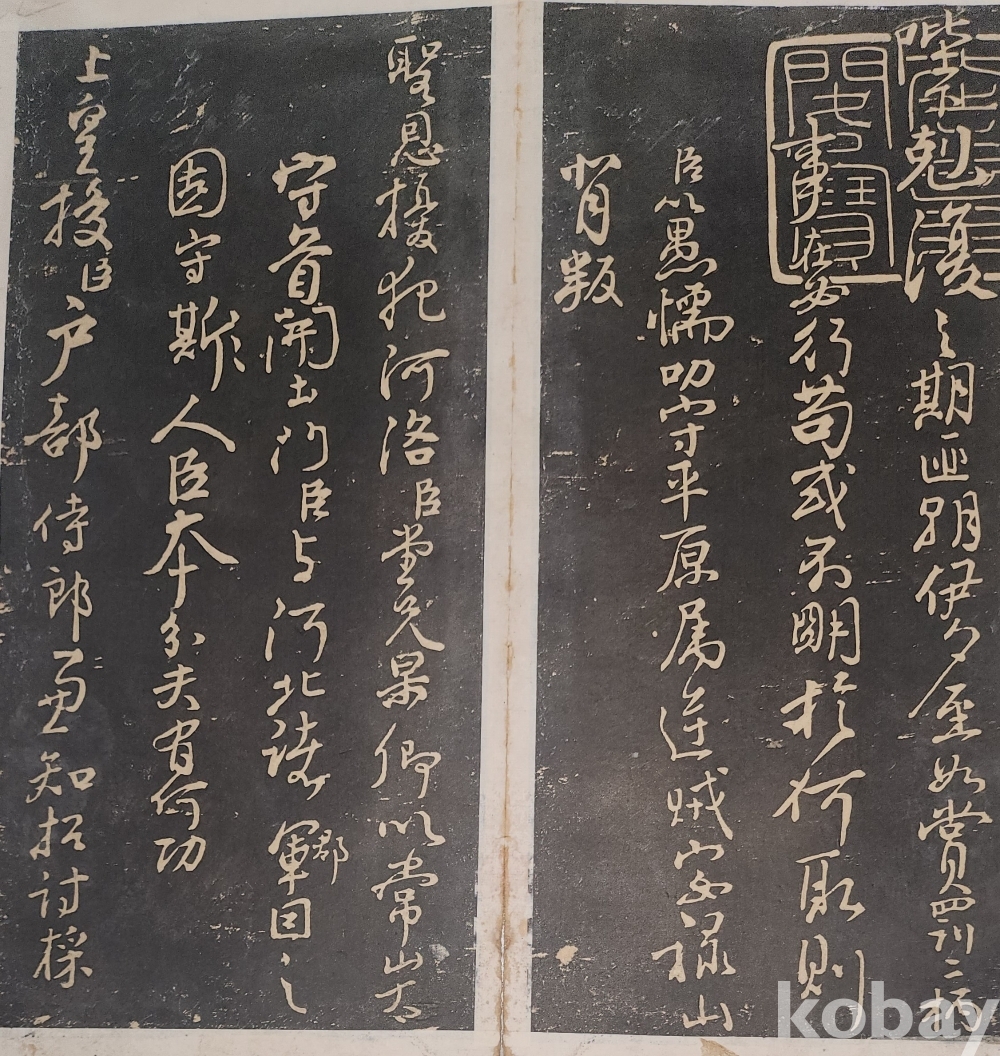 克復之期匪朝伊夕至如賞罰二柄
事在必行苟或不明於何取則
臣以愚懦叨守平原屬逆賊安祿山
背叛
聖恩擾犯河洛臣堂兄杲卿以常山太
守首開土門臣与河北諸郡軍因之
固守斯人臣本分夫有何功
上皇授臣戶部侍郎兼知招討採
kobay